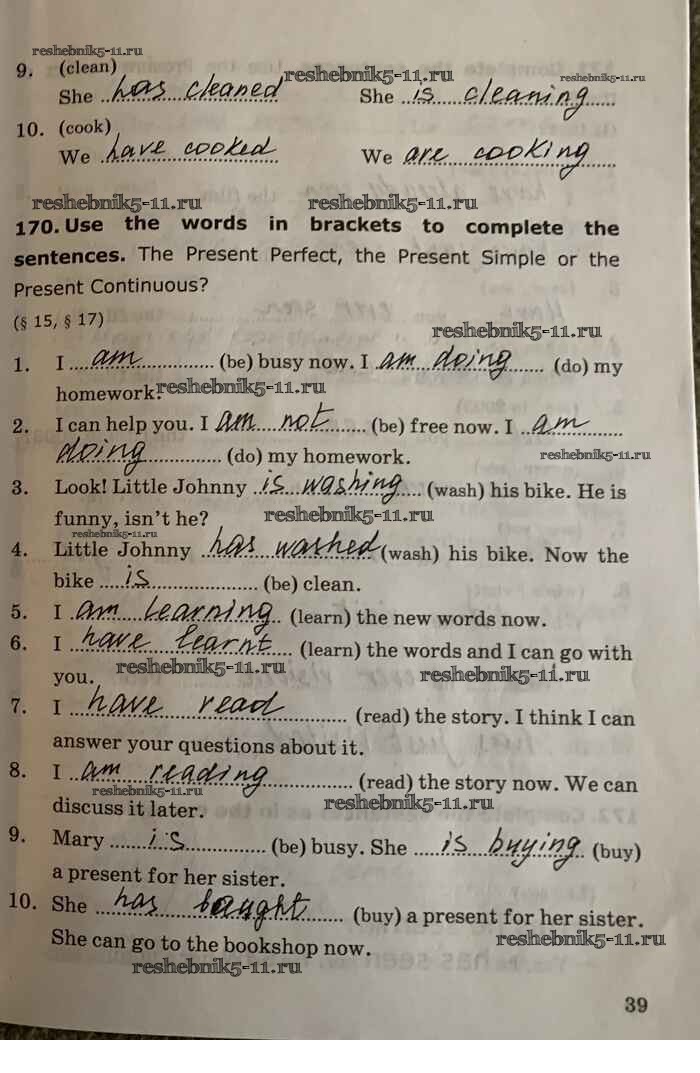 reshebnik5-11.ru
9. (clean)
She has cleaned She is cleaning
reshebnik5-11.ru reshebnik5-11.ru
10. (cook)
We have cooked We are cooking
reshebnik5-11.ru reshebnik5-11.ru
170. Use the words in brackets to complete the
sentences. The Present Perfect, the Present Simple or the
Present Continuous?
(§ 15, § 17)
reshebnik5-11.ru
1. I am (be) busy now. I am doing (do) my
homework. reshebnik5-11.ru
2. I can help you. I am not (be) free now. I am
doing (do) my homework. reshebnik5-11.ru
3. Look! Little Johnny is washing (wash) his bike. He is
funny, isn't he? reshebnik5-11.ru
reshebnik5-11.ru
4. Little Johnny has washed (wash) his bike. Now the
bike is (be) clean.
5. I am learning (learn) the new words now.
6. I have learnt (learn) the words and I can go with
you. reshebnik5-11.ru reshebnik5-11.ru
7. I have read (read) the story. I think I can
answer your questions about it.
8. I am reading (read) the story now. We can
reshebnik5-11.ru reshebnik5-11.ru
discuss it later.
9. Mary is (be) busy. She is buying (buy)
a present for her sister.
10. She has bought (buy) a present for her sister.
She can go to the bookshop now. reshebnik5-11.ru
reshebnik5-11.ru
39